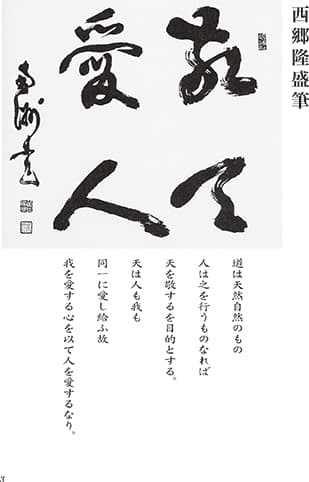 西郷隆盛筆
敬天
愛人
南洲書
道は天然自然のもの
人は之を行うものなれば
天を敬するを目的とする。
天は人も我も
同一に愛し給ふ故
我を愛する心を以て人を愛するなり。
3